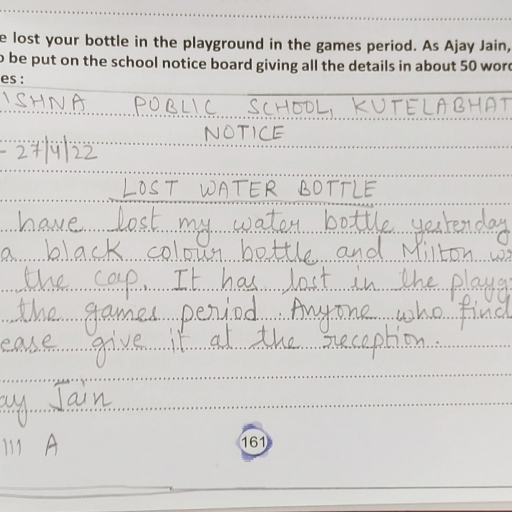 e lost your bottle in the playground in the games period. As Ajay Jain,
o be put on the school notice board giving all the details in about 50 word
es :
ISHNA PUBLIC SCHOOL, KUTELABHAT
NOTICE
- 27/4/22
LOST WATER BOTTLE
have lost my water bottle yesterday
a black colour bottle and Milton wr
the cap. It has lost in the playg
the games period. Anyone who find
ease give it at the reception.
ay Jain
III A
161